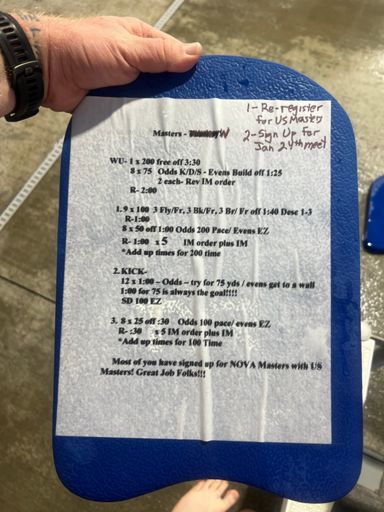 1- Re-register
for US Masters
2- Sign Up for
Jan 24th meet
Masters - W
WU- 1 x 200 free off 3:30
8 x 75 Odds K/D/S - Evens Build off 1:25
2 each- Rev IM order
R- 2:00
1. 9 x 100 3 Fly/Fr, 3 Bk/Fr, 3 Br/ Fr off 1:40 Desc 1-3
R-1:00
8 x 50 off 1:00 Odds 200 Pace/ Evens EZ
R- 1:00 x 5 IM order plus IM
*Add up times for 200 time
2. KICK-
12 x 1:00 – Odds – try for 75 yds / evens get to a wall
1:00 for 75 is always the goal!!!!
SD 100 EZ
3. 8 x 25 off :30 Odds 100 pace/ evens EZ
R- :30 x 5 IM order plus IM
*Add up times for 100 Time
Most of you have signed up for NOVA Masters with US
Masters! Great Job Folks!!!